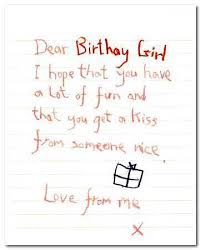 Dear Birthay Girl
I hope that you have
a lot of fun and
that you get a kiss
from someone nice
Love from me
x